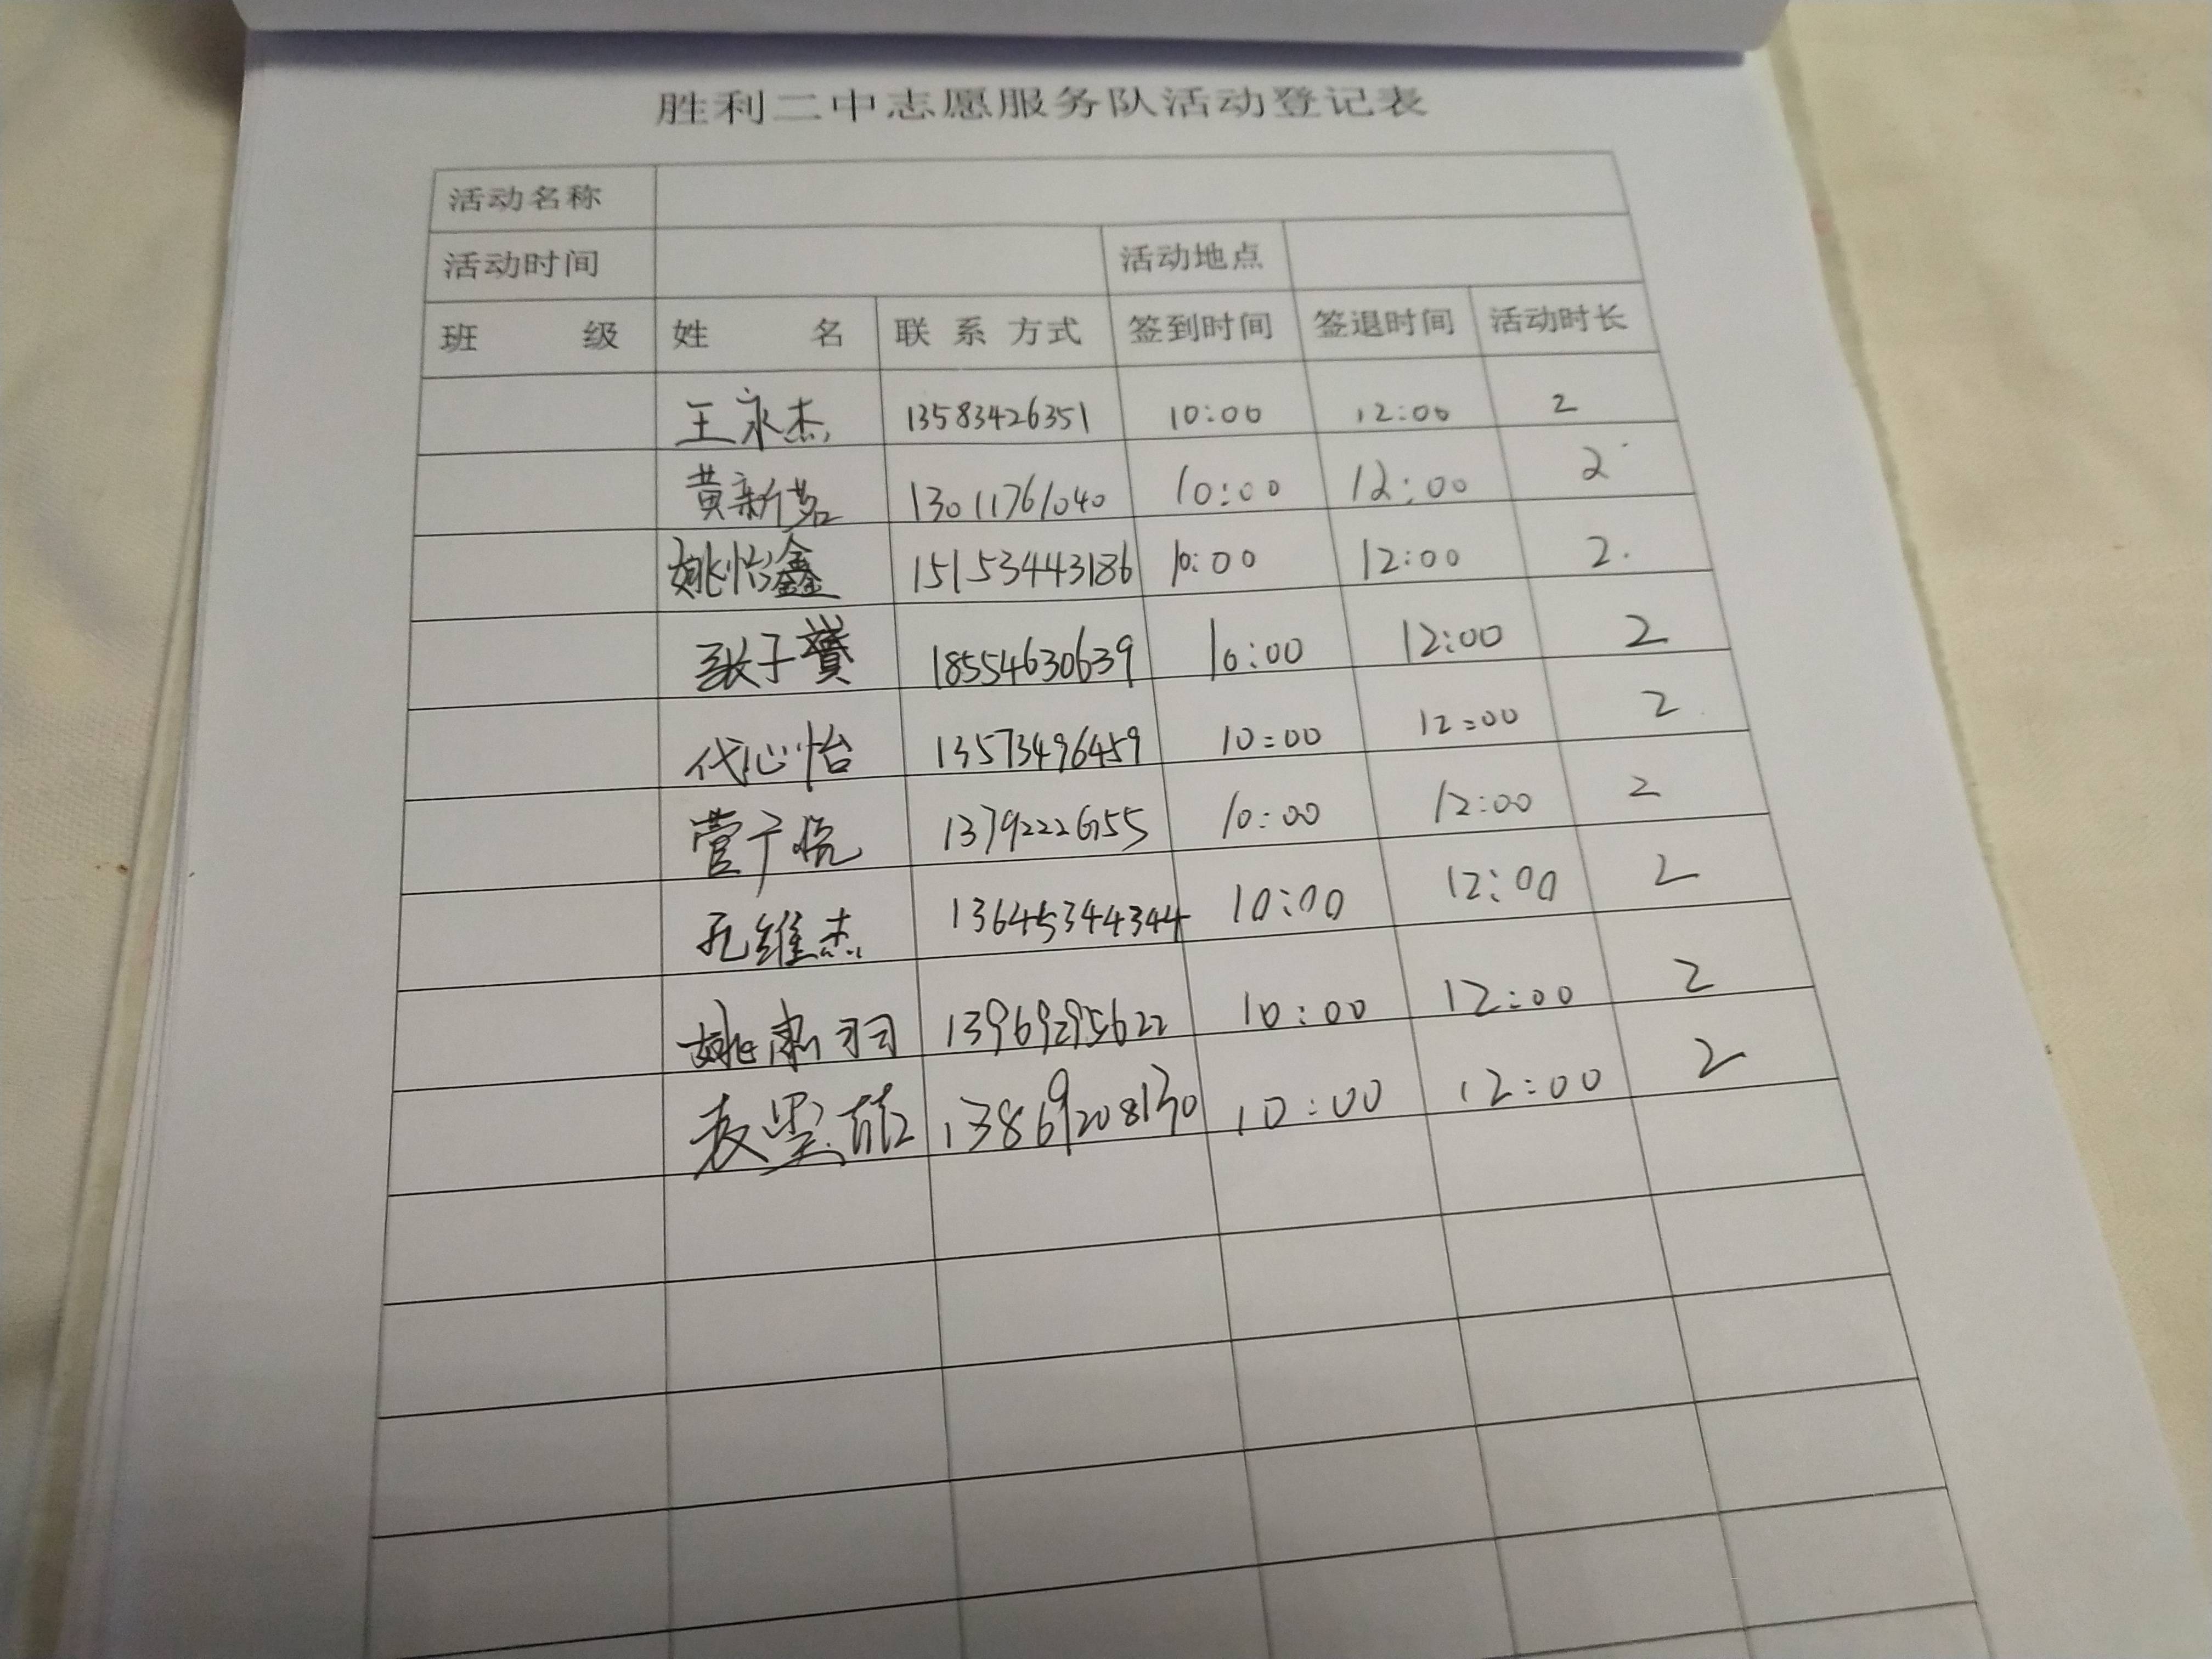 胜利二中志愿服务队活动登记表
活动名称
活动时间 活动地点
班 级 姓 名 联 系 方式 签到时间 签退时间 活动时长
王永杰 13583426351 10:00 12:00 2
黄新茗 13011761040 10:00 12:00 2
姚怡鑫 15153443186 10:00 12:00 2.
张子赟 18554630639 10:00 12:00 2
代心怡 13573496459 10:00 12:00 2
10:00 12:00 2
孔维杰 13645344344 10:00 12:00 2
13969295622 10:00 12:00 2
13869208130 10:00 12:00 2